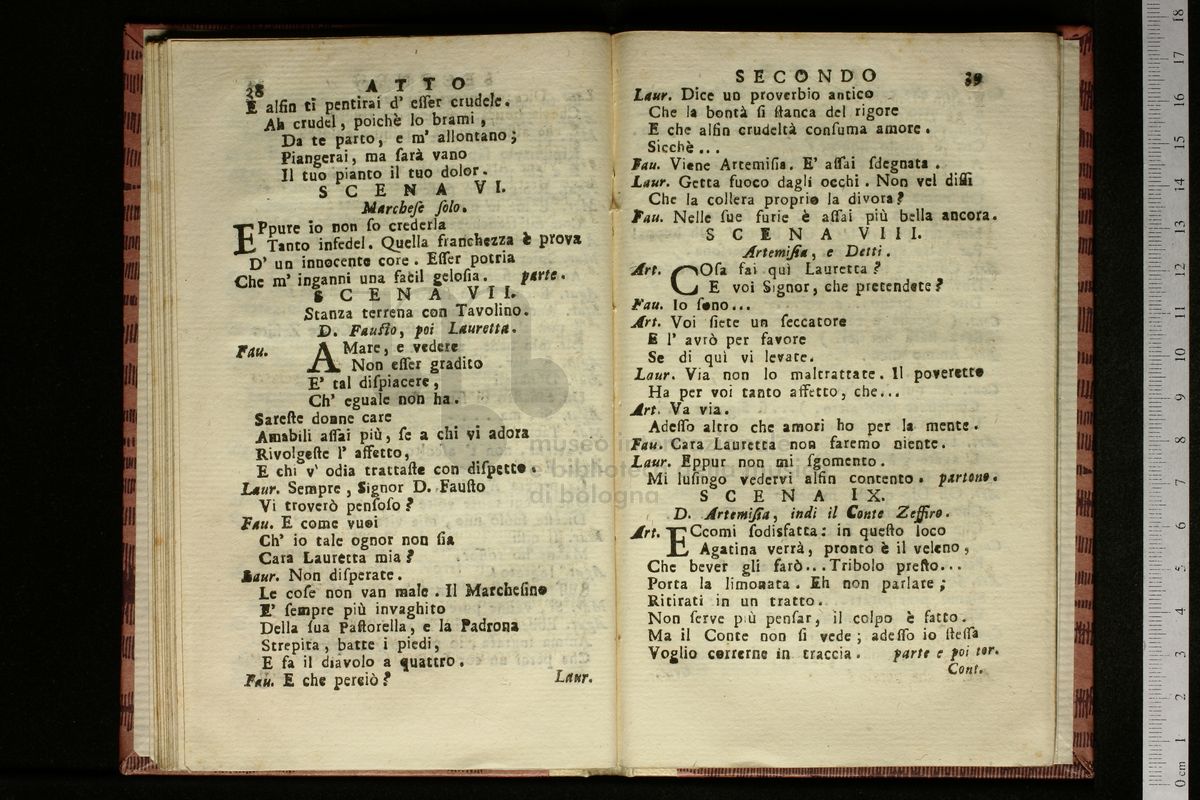 38 ATTO
E alfin ti pentirai d' eſſer crudele.
Ah crudel, poichè lo brami,
Da te parto, e m' allontano;
Piangerai, ma ſarà vano
Il tuo pianto il tuo dolor.
SCENA VI.
Marcheſe ſolo.
EPpure io non ſo crederla
Tanto infedel. Quella franchezza è prova
D' un innocente core. Eſſer potria
Che m' inganni una facil geloſia. parte.
SCENA VII.
Stanza terrena con Tavolino.
D. Fauſto, poi Lauretta.
Fau. AMare, e vedere
Non eſſer gradito
E' tal diſpiacere,
Ch' eguale non ha.
Sareſte donne care
Amabili aſſai più, ſe a chi vi adora
Rivolgeſte l' affetto,
E chi v' odia trattaſte con diſpetto.
Laur. Sempre, Signor D. Fauſto
Vi troverò penſoſo?
Fau. E come vuoi
Ch' io tale ognor non ſia
Cara Lauretta mia?
Laur. Non diſperate.
Le coſe non van male. Il Marcheſino
E' ſempre più invaghito
Della ſua Paſtorella, e la Padrona
Strepita, batte i piedi,
E fa il diavolo a quattro.
Fau. E che perciò? Laur.
SECONDO 39
Laur. Dice un proverbio antico
Che la bontà ſi ſtanca del rigore
E che alfin crudeltà conſuma amore.
Sicchè...
Fau. Viene Artemiſia. E' aſſai ſdegnata.
Laur. Getta fuoco dagli occhi. Non vel diſſi
Che la collera proprio la divora?
Fau. Nelle ſue furie è aſſai più bella ancora.
SCENA VIII.
Artemiſia, e Detti.
Art. COſa fai quì Lauretta?
E voi Signor, che pretendete?
Fau. Io ſono...
Art. Voi ſiete un ſeccatore
E l' avrò per favore
Se di quì vi levate.
Laur. Via non lo maltrattate. Il poveretto
Ha per voi tanto affetto, che...
Art. Va via.
Adeſſo altro che amori ho per la mente.
Fau. Cara Lauretta non faremo niente.
Laur. Eppur non mi ſgomento.
Mi luſingo vedervi alfin contento. partono.
SCENA IX.
D. Artemiſia, indi il Conte Zeffiro.
Art. ECcomi ſodisfatta: in queſto loco
Agatina verrà, pronto è il veleno,
Che bever gli farò... Tribolo preſto...
Porta la limonata. Eh non parlare;
Ritirati in un tratto.
Non ſerve più penſar, il colpo è fatto.
Ma il Conte non ſi vede; adeſſo io ſteſſa
Voglio correrne in traccia. parte e poi tor.
Cont.
museo internazionale
e biblioteca della musica
di bologna
0 cm 1 2 3 4 5 6 7 8 9 10 11 12 13 14 15 16 17 18